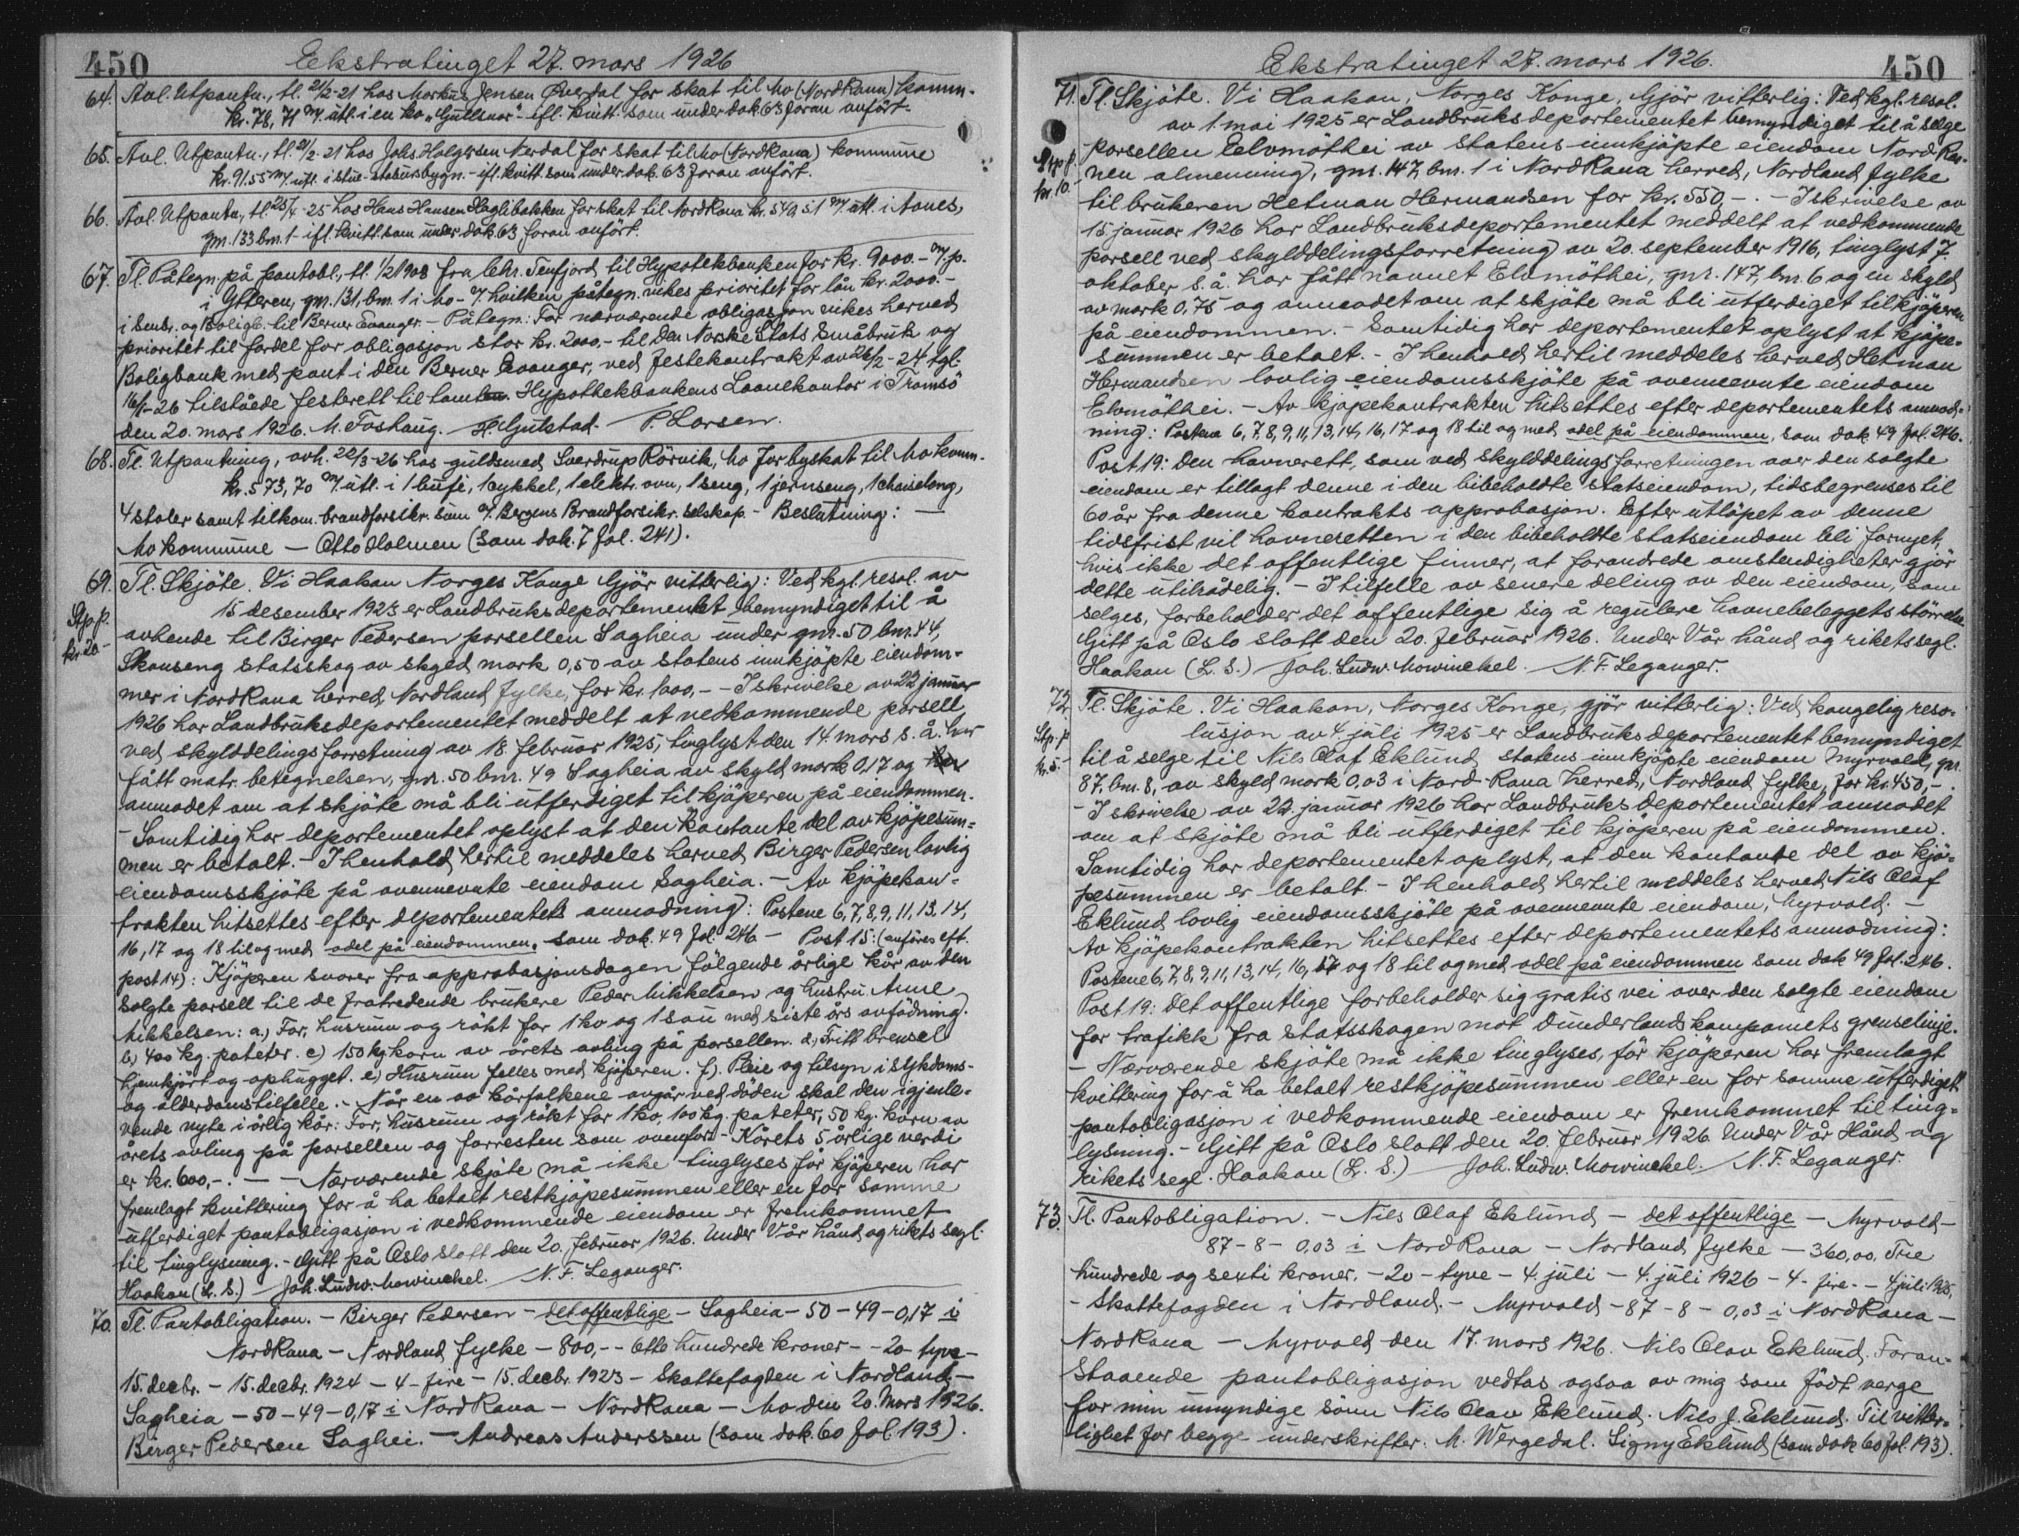 450
Ekstratinget 27. mars 1926
64. Avl. Utpantn., tl. 21/2-21 hos Markus Jensen Överdal for skat til Mo (NordRana) komm.
kr. 78,71 m/ utl. i en ko "Gullsnor" ifl. kvitt. som under dok. 63 foran anfört.
65. Avl. Utpantn., tl. 21/2-21 hos Johs Holgersen Nerdal for skat til Mo (NordRana) kommune
kr. 91.55 m/ utl. i stue- stabursbygn. - ifl. kvitt. som under dok. 63 foran anfört.
66. Avl. Utpantn., tl. 25/4-25 hos Hans Hansen Haglibakken for skat til NordRana kr. 549,51 m/ utl. i Aanes,
gnr. 133 bnr. 1 - ifl. kvitt. som under dok. 63 foran anfört.
67. Tl. Påtegn. på pantobl., tl. 1/2 1908 fra Chr. Tenfjord til Hypotekbanken for kr. 9000.- m/ p.
i Ytteren, gnr. 131, bnr. 1 i Mo - m/ hvilken påtegn. vikes prioritet for lån kr. 2000.-
i Småbr. og Boligb. til Berner Evanger. - Påtegn: For nærværende obligasjon vikes herved
prioritet til fordel for obligasjon stor kr. 2000,- til Den Norske Stats Småbruk og
Boligbank med pant i den Berner Evanger, ved festekontrakt av 26/2-24 tgl.
16/1-26 tilståede festerett til tomten. Hypothekbankens Laanekontor i Tromsö
den 20. mars 1926. M. Foshaug. H. Gulstad. P. Larsen.
68. Tl. Utpantning, avh. 22/3-26 hos guldsmed Sverdrup Rörvik, Mo for byskat til Mo komm.
kr. 573,70 m/ utl. i 1 bufé, 1 cykkel, 1 elektr. ovn, 1 seng, 1 jernseng, 1 chaiselong,
4 stoler samt tilkom. brandforsikr. sum i/ Bergens Brandforsikr. selskap. - Beslutning: -
Mo kommune - Otto Holmen (som dok. 7 fol. 241).
69. Tl. Skjöte. Vi Haakon Norges Konge Gjör vitterlig: Ved kgl. resol. av
15 desember 1923 er Landbruksdepartementet bemyndiget til å
Stp. p.
kr. 20-
avhende til Birger Pedersen parsellen Sagheia under gnr. 50 bnr. 44,
Skonseng statsskog av skyld mark 0,50 av statens innkjöpte eiendom-
mer i NordRana herred, Nordland fylke, for kr. 1000,- - I skrivelse av 22 januar
1926 har Landbruksdepartementet meddelt at vedkommende parsell
ved skylddelingsforretning av 18 februar 1925, tinglyst den 14 mars s. å. har
fått matr. betegnelsen, gnr. 50 bnr. 49 Sagheia av skyld mark 0,17 og
anmodet om at skjöte må bli utferdiget til kjöperen på eiendommen.
- Samtidig har departementet oplyst at den kontante del av kjöpesum-
men er betalt. - I henhold hertil meddeles herved Birger Pedersen lovlig
eiendomsskjöte på ovennevnte eiendom Sagheia. - Av kjöpekon-
trakten hitsettes efter departementets anmodning: Postene 6, 7, 8, 9, 11, 13, 14,
16, 17 og 18 til og med odel på eiendommen, som dok. 49 fol. 246 - Post 15: (anföres eft.
post 14): Kjöperen svarer fra approbasjonsdagen fölgende årlige kår av den
solgte parsell til de fratredende brukere Peder Mikkelsen og hustru Anne
Mikkelsen: a.) For, husrum og rökt for 1 ko og 1 sau med siste års avfödning.
b) 400 kg. poteter. c) 150 kg korn av årets avling på parsellen. d.) Fritt brensel
hjemkjört og ophugget. e.) Husrum felles med kjöperen. f.) Pleie og tilsyn i sykdoms-
og alderdomstilfelle. - Når en av kårfolkene avgår ved döden skal den igjenle-
vende nyte i årlig kår: For, husrum og rökt for 1 ko, 100 kg. poteter, 50 kg. korn av
årets avling på parsellen og forresten som ovenfor. - Kårets 5 årlige verdi
er kr. 600,-. - - Nærværende skjöte må ikke tinglyses för kjöperen har
fremlagt kvittering for å ha betalt restkjöpesummen eller en for samme
utferdiget pantobligasjon i vedkommende eiendom er fremkommet
til tinglysning. - Gitt på Oslo slott den 20. februar 1926. Under Vår hånd og rikets segl.
Haakon (L. S.) Joh. Ludw. Mowinckel. N. F. Leganger.
70. Tl. Pantobligation. - Birger Pedersen - det offentlige - Sagheia - 50 - 49 - 0,17 i
NordRana - Nordland fylke - 800,- - Otte hundrede kroner - - 20 - tyve -
15. decbr. - 15. decbr. 1924 - 4 - fire - 15. decbr. 1923 - Skattefogden i Nordland -
Sagheia - 50 - 49 - 0,17 i NordRana - NordRana - Mo den 20. Mars 1926.
Birger Pedersen Saghei. - Andreas Anderssen (som dok. 60 fol. 193).
450
Ekstratinget 27. mars 1926.
71. Tl. Skjöte. Vi Haakon, Norges Konge, Gjör vitterlig: Ved kgl. resol.
av 1. mai 1925 er Landbruksdepartementet bemyndiget til å selge
Stp. p.
kr. 10.-
parsellen Elvmöthei av statens innkjöpte eiendom Nord Ra-
nen almenning, gnr. 147, bnr. 1 i NordRana herred, Nordland fylke
til brukeren Hetman Hermandsen for kr. 550,-. - I skrivelse av
15 januar 1926 har Landbruksdepartementet meddelt at vedkommende
parsell ved skylddelingsforretning av 20. september 1916, tinglyst 7.
oktober s. å. har fått navnet Elvmöthei, gnr. 147, bnr. 6 og en skyld
av mark 0,75 og anmodet om at skjöte må bli utferdiget til kjöperen
på eiendommen. - Samtidig har departementet oplyst at kjöpe-
summen er betalt. - I henhold hertil meddeles herved Hetman
Hermandsen lovlig eiendomsskjöte på ovennevnte eiendom
Elvmöthei. - Av kjöpekontrakten hitsettes efter departementets anmod-
ning: Postene 6, 7, 8, 9, 11, 13, 14, 16, 17 og 18 til og med odel på eiendommen, som dok. 49 fol. 246.
Post 19: Den havnerett, som ved skylddelingsforretningen over den solgte
eiendom er tillagt denne i den bibeholdte statseiendom, tidsbegrenses til
60 år fra denne kontrakts approbasjon. Efter utlöpet av denne
tidsfrist vil havneretten i den bibeholdte statseiendom bli fornyet,
hvis ikke det offentlige finner, at forandrede omstendigheter gjör
dette utilrådelig. - I tilfelle av senere deling av den eiendom, som
selges, forbeholder det offentlige sig å regulere havnebeleggets störrelse.
Gitt på Oslo slott den 20. februar 1926. Under Vår hånd og rikets segl.
Haakon (L. S.) Joh. Ludw. Mowinckel. N. F. Leganger.
72. Tl. Skjöte. Vi Haakon, Norges Konge, gjör vitterlig: Ved kongelig reso-
lusjon av 4. juli 1925 er Landbruksdepartementet bemyndiget
Stp. p.
kr. 5.-
til å selge til Nils Olaf Eklund statens innkjöpte eiendom Myrvold, gnr.
87, bnr. 8, av skyld mark 0,03 i Nord-Rana herred, Nordland fylke, for kr. 450,-.
- I skrivelse av 22 januar 1926 har Landbruksdepartementet anmodet
om at skjöte må bli utferdiget til kjöperen på eiendommen.
Samtidig har departementet oplyst, at den kontante del av kjö-
pesummen er betalt. - I henhold hertil meddeles herved Nils Olaf
Eklund lovlig eiendomsskjöte på ovennevnte eiendom, Myrvold. -
Av kjöpekontrakten hitsettes efter departementets anmodning:
Postene 6, 7, 8, 9, 11, 13, 14, 16, 17 og 18 til og med odel på eiendommen som dok 49 fol. 246.
Post 19: Det offentlige forbeholder sig gratis vei over den solgte eiendom
for trafikk fra statsskogen mot Dunderlandskompaniets grenselinje.
- Nærværende skjöte må ikke tinglyses, för kjöperen har fremlagt
kvittering for å ha betalt restkjöpesummen eller en for samme utferdiget
pantobligasjon i vedkommende eiendom er fremkommet til ting-
lysning. - Gitt på Oslo slott den 20. februar 1926. Under Vår Hånd og
rikets segl. Haakon (L. S.) Joh. Ludw. Mowinckel. N. F. Leganger.
73. Tl. Pantobligation. - Nils Olaf Eklund - det offentlige - Myrvold -
87 - 8 - 0,03 i NordRana - Nordland fylke - 360,00. Tre
hundrede og sexti kroner. - 20 - tyve - 4. juli - 4. juli 1926 - 4 - fire. - 4 juli 1925,
- Skattefogden i Nordland, - Myrvold - 87 - 8 - 0,03 i NordRana -
NordRana - Myrvold den 17. mars 1926. Nils Olav Eklund. Foran-
staaende pantobligasjon vedtas ogsaa av mig som födt verge
for min umyndige sönn Nils Olav Eklund. Nils J. Eklund. Til vitter-
lighet for begge underskrifter. M. Wergedal. Signy Eklund (som dok 60 fol. 193).